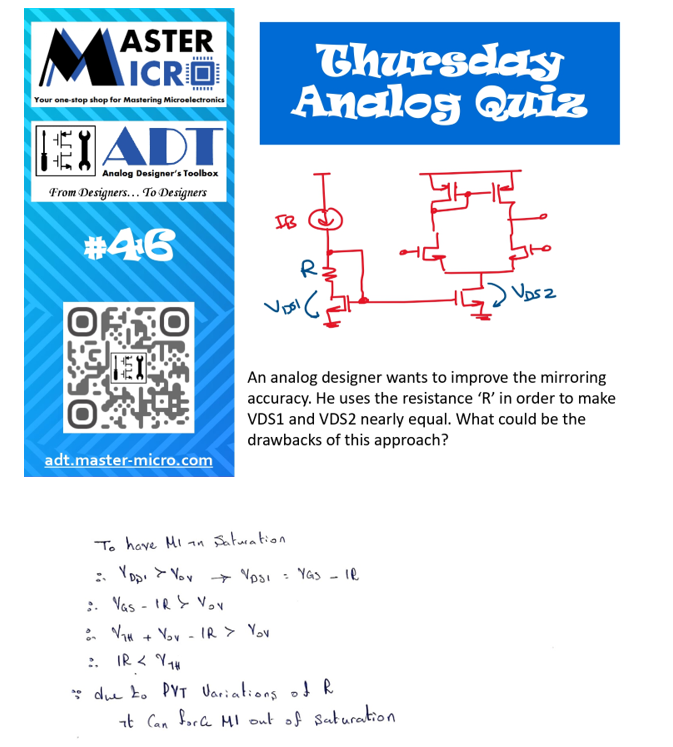 MASTER
MICRO
Your one-stop shop for Mastering Microelectronics
ADT
Analog Designer's Toolbox
From Designers... To Designers
#46
adt.master-micro.com
Thursday
Analog Quiz
IB
R
VDS1
VDS2
An analog designer wants to improve the mirroring
accuracy. He uses the resistance ‘R’ in order to make
VDS1 and VDS2 nearly equal. What could be the
drawbacks of this approach?
To have M1 in Saturation
∴ VDS1 > Vov → VDS1 = VGS - IR
∴ VGS - IR > Vov
∴ VTH + Vov - IR > Vov
∴ IR < VTH
∵ due to PVT Variations of R
it Can force M1 out of saturation